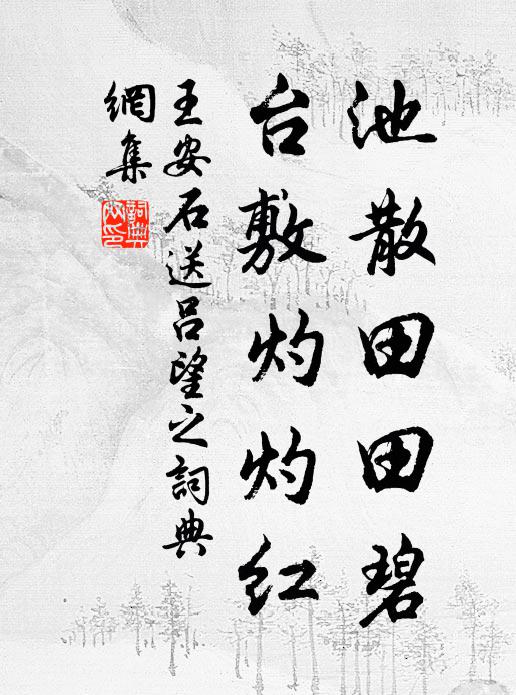 池散田田碧
台敷灼灼红
王安石送吕望之詞典
網集
詞典网印